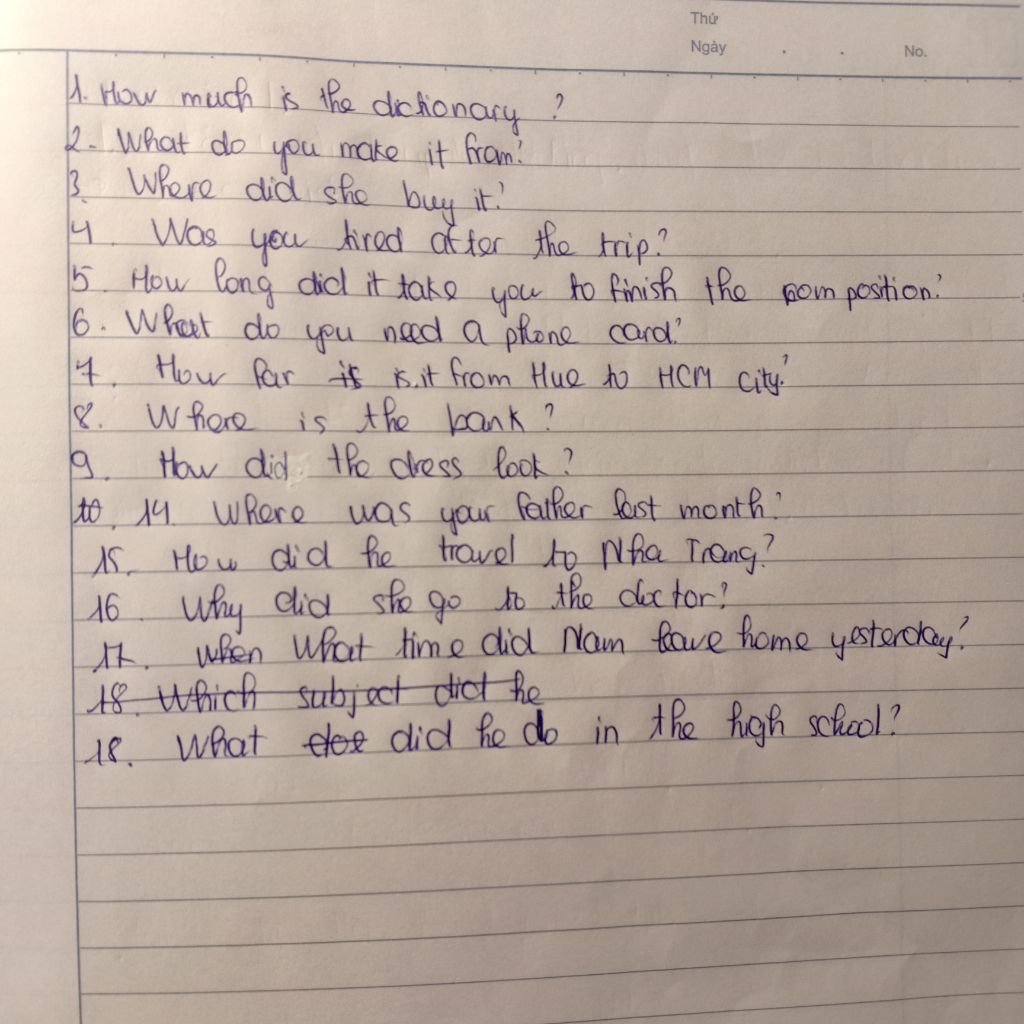 Thứ
Ngày . . No.
1. How much is the dictionary ?
2. What do you make it from?
3. Where did she buy it?
4. Was you tired after the trip?
5. How long did it take you to finish the composition?
6. What do you need a phone card?
7. How far is is it from Hue to HCM city?
8. Where is the bank ?
9. How did the dress look ?
10. 14. Where was your father last month?
15. How did he travel to Nha Trang?
16 Why did she go to the doctor?
17. When What time did Nam leave home yesterday?
18. Which subject did he
18. What doe did he do in the high school?